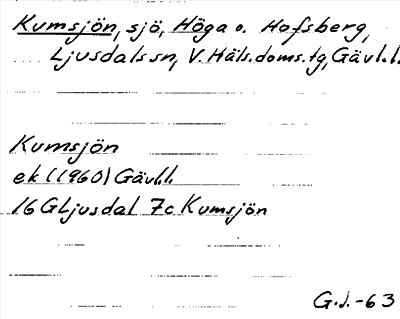 Kumsjön, sjö, Höga o. Hofsberg,
Ljusdals sn, V. Häls. doms. tg, Gävl. l.
Kumsjön
ek (1960) Gävl. l.
16 G Ljusdal 7c Kumsjön
G. J. -63